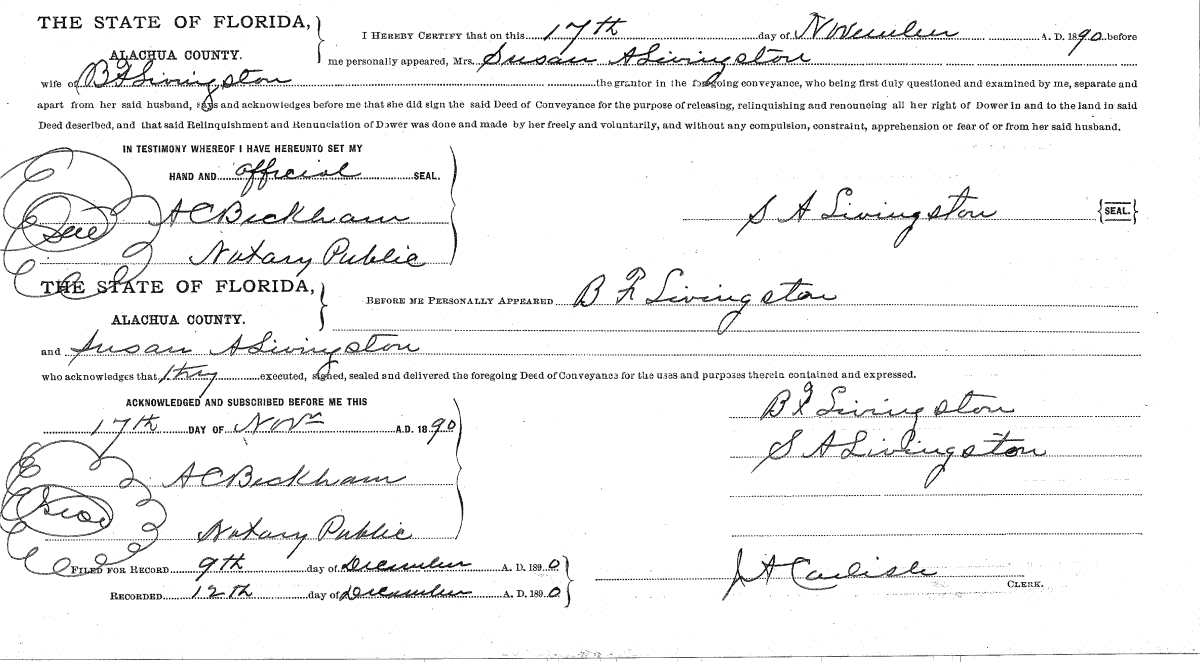 THE STATE OF FLORIDA,
ALACHUA COUNTY.
I HEREBY CERTIFY that on this 17th day of November A. D. 1890 before
me personally appeared, Mrs. Susan A Livingston
wife of B F Livingston the grantor in the foregoing conveyance, who being first duly questioned and examined by me, separate and
apart from her said husband, says and acknowledges before me that she did sign the said Deed of Conveyance for the purpose of releasing, relinquishing and renouncing all her right of Dower in and to the land in said
Deed described, and that said Relinquishment and Renunciation of Dower was done and made by her freely and voluntarily, and without any compulsion, constraint, apprehension or fear of or from her said husband.
IN TESTIMONY WHEREOF I HAVE HEREUNTO SET MY
HAND AND official SEAL.
A C Beckham
S A Livingston {SEAL.}
Seal
Notary Public
THE STATE OF FLORIDA,
ALACHUA COUNTY.
BEFORE ME PERSONALLY APPEARED B F Livingston
and Susan A Livingston
who acknowledges that they executed, signed, sealed and delivered the foregoing Deed of Conveyance for the uses and purposes therein contained and expressed.
ACKNOWLEDGED AND SUBSCRIBED BEFORE ME THIS
17th DAY OF Novr A.D. 1890
B F Livingston
S A Livingston
A C Beckham
Seal
Notary Public
FILED FOR RECORD 9th day of December A. D. 1890
RECORDED 12th day of December A. D. 1890
J A Carlisle
CLERK.